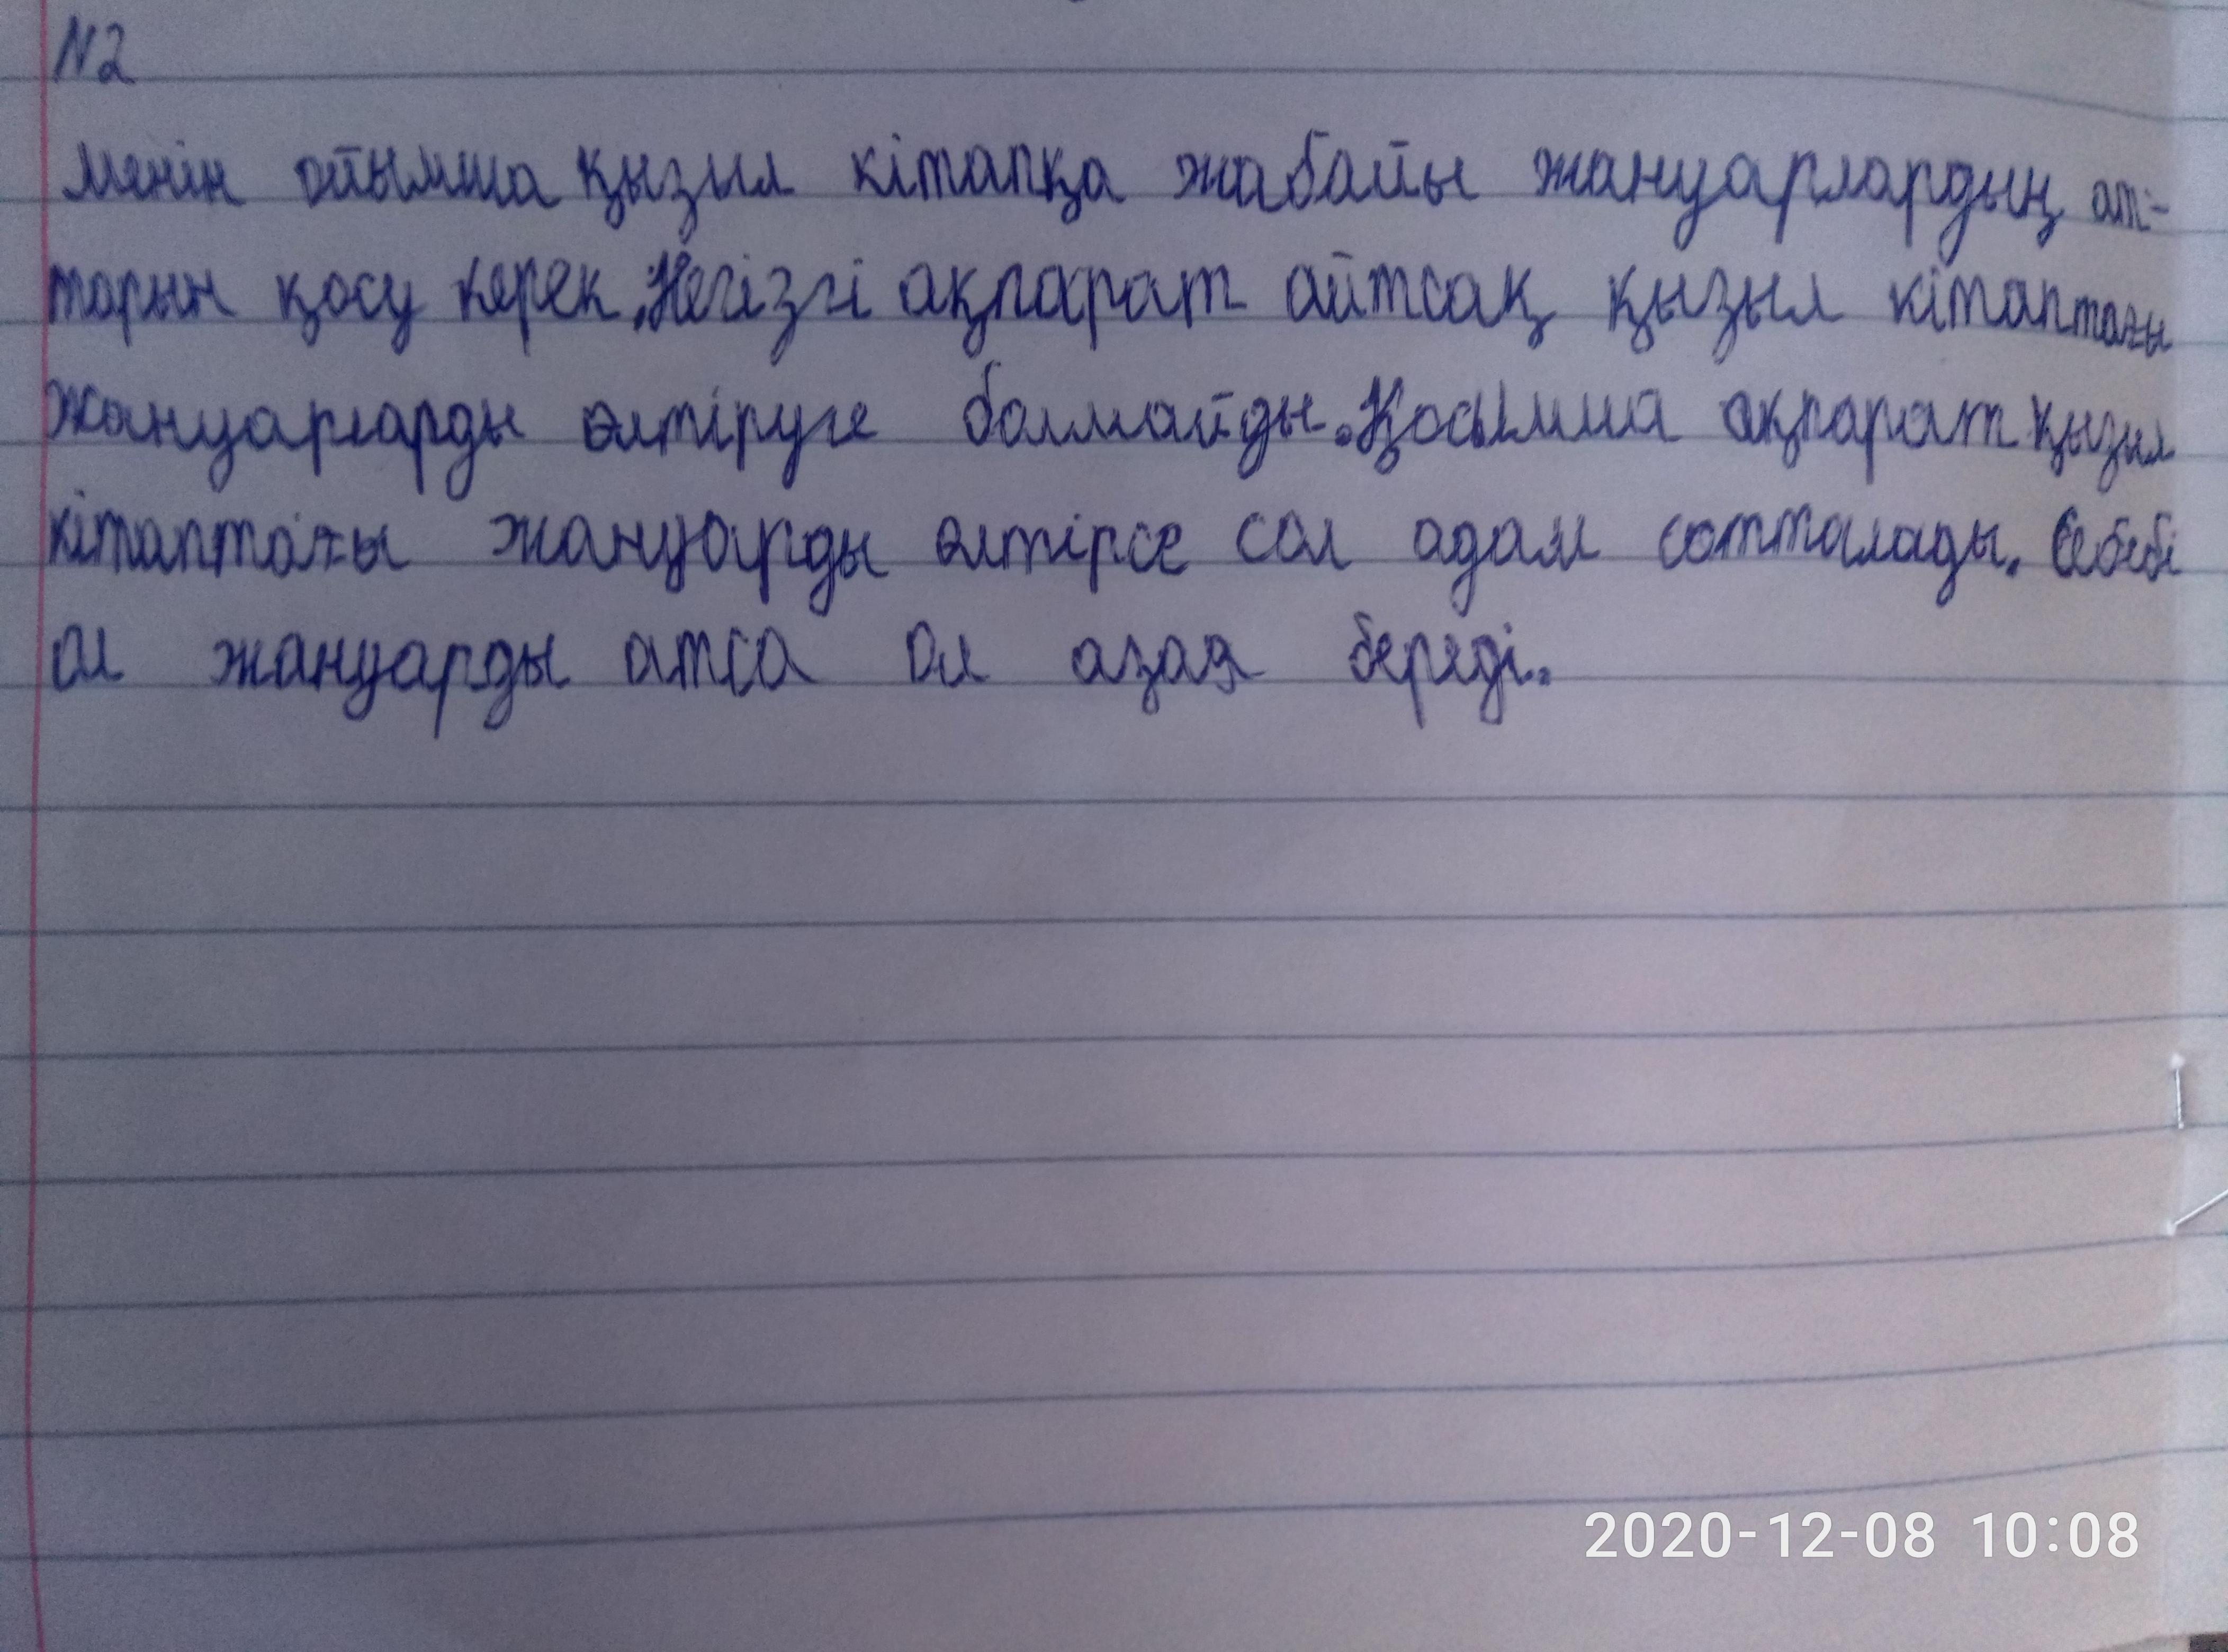 N2
Менін ойымша қызыл кітапқа жабайы жануарлардың ат-
тарын қосу керек. Негізгі ақпарат айтсақ қызыл кітаптағы
жануарларды өлтіруге болмайды. Қосымша ақпарат қызыл
кітаптағы жануарды өлтірсе сол адам сотталады. Себебі
ол жануарды атса ол азая береді.
2020-12-08 10:08